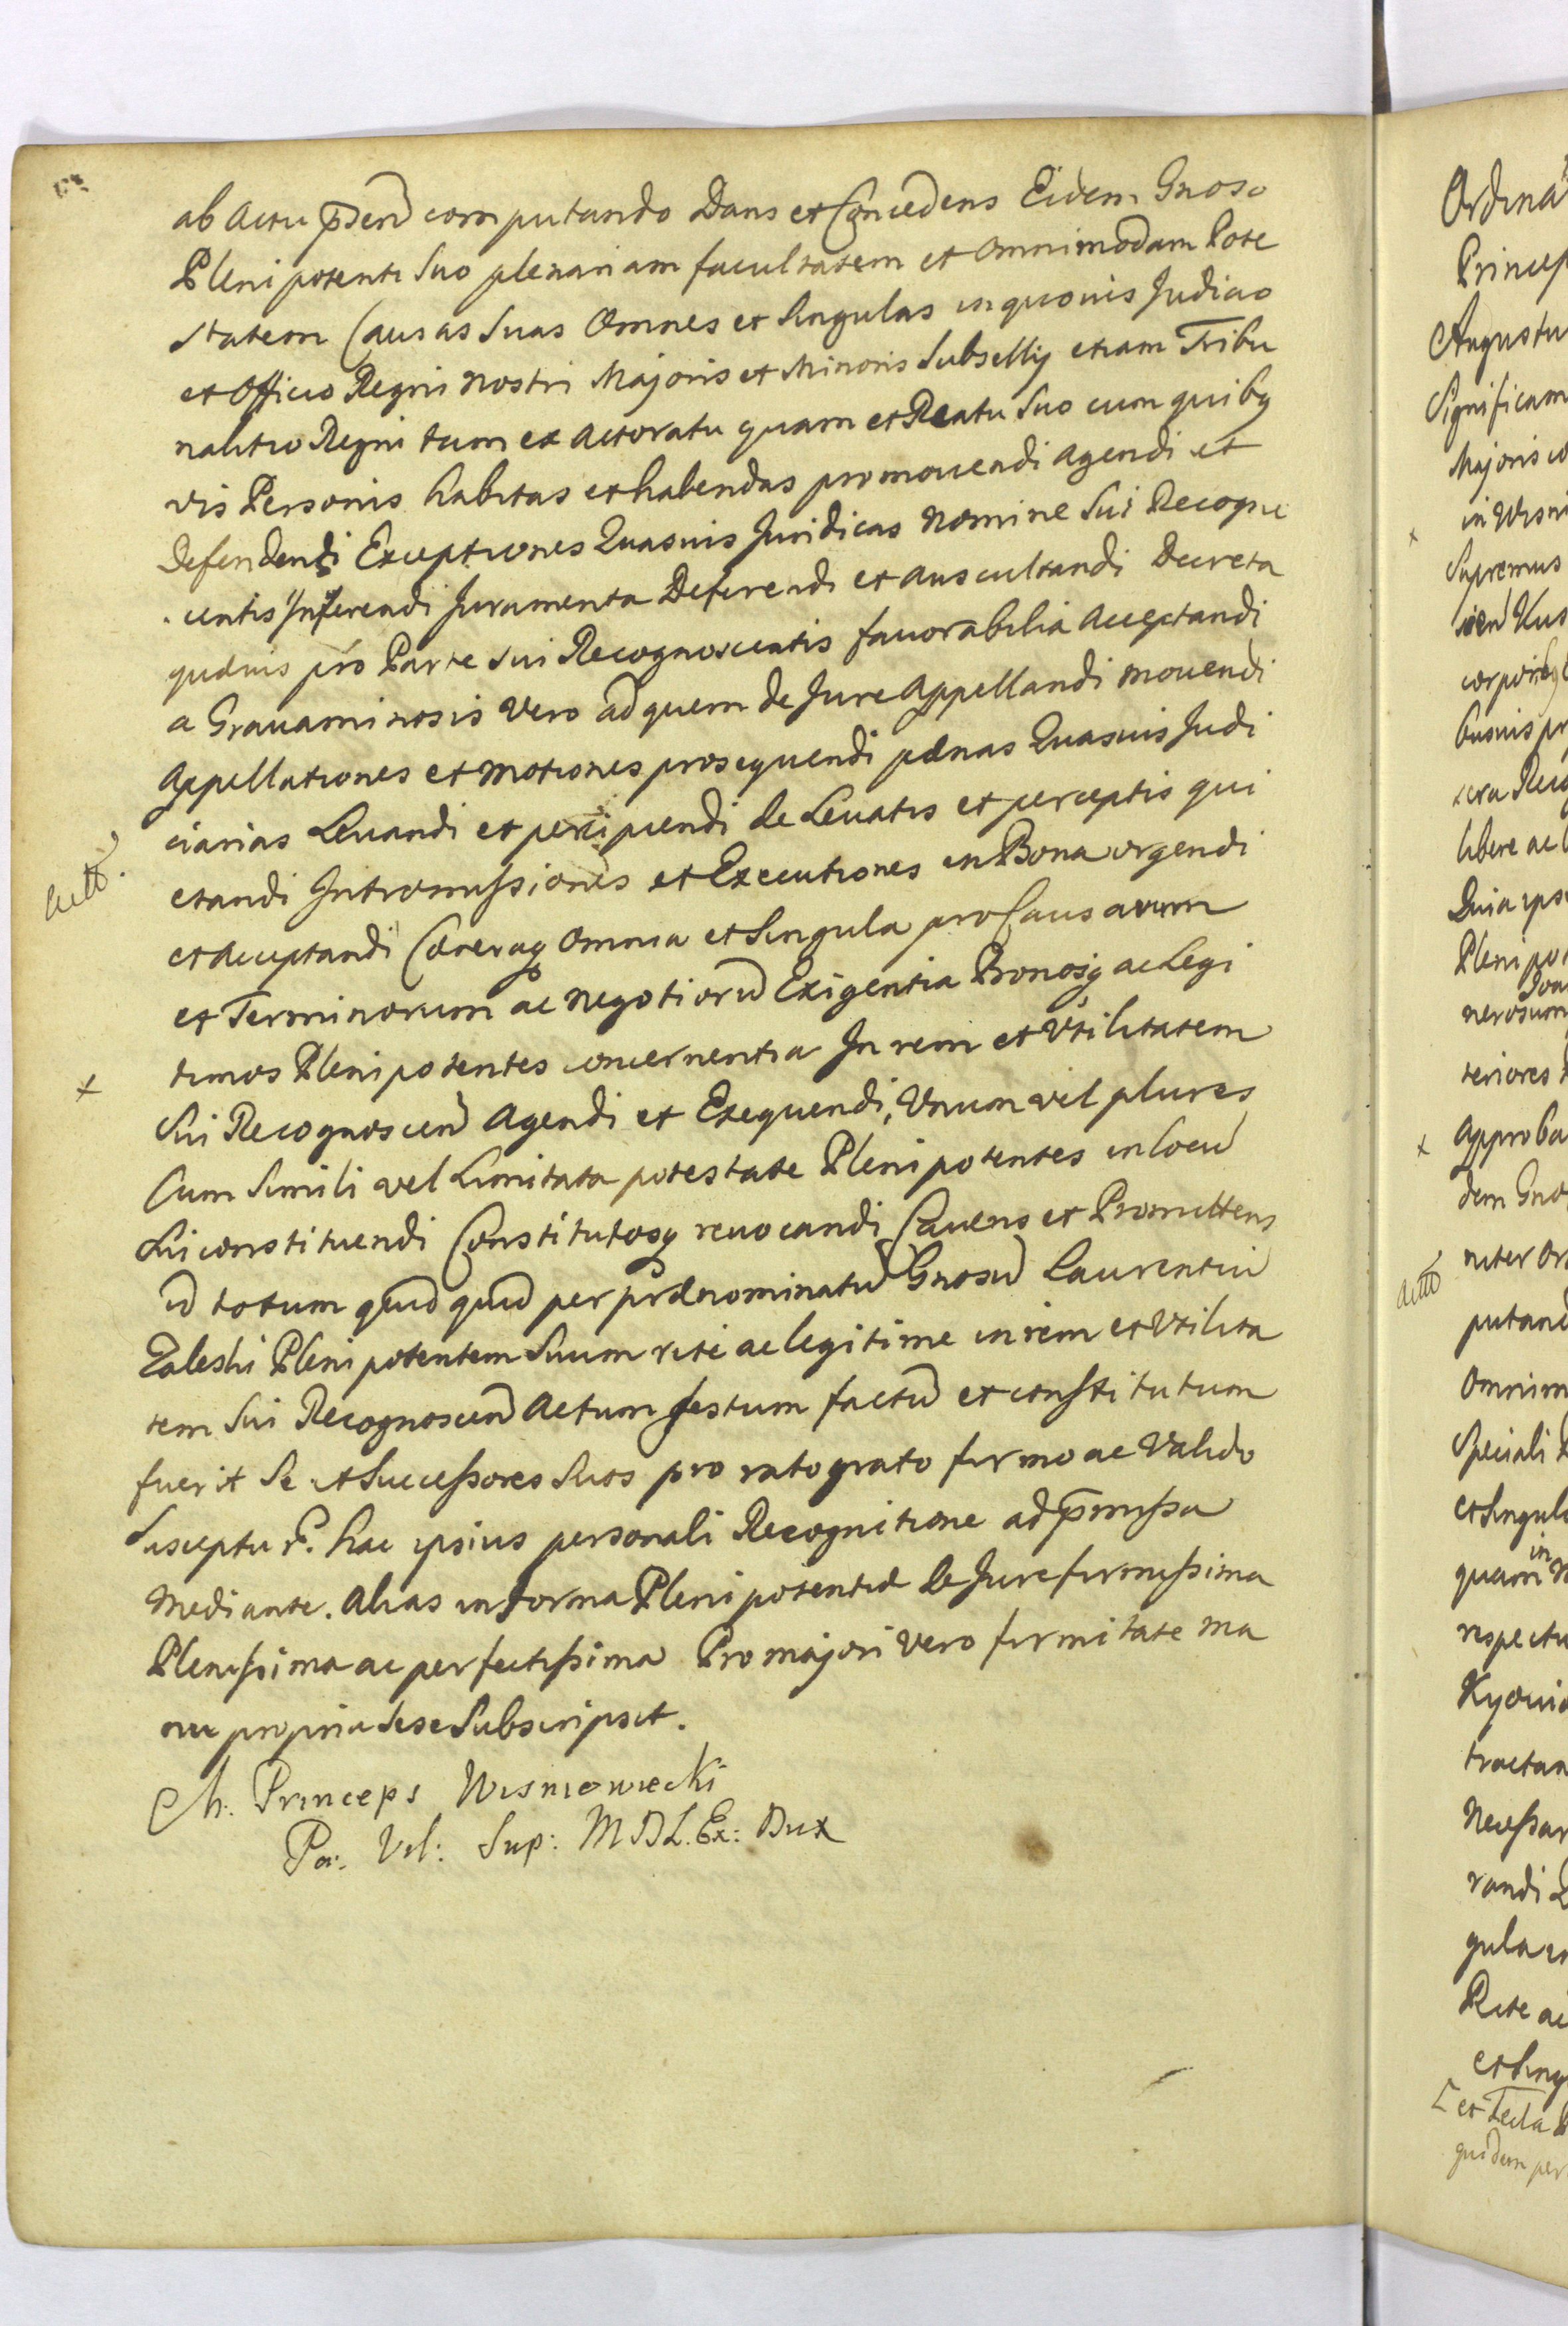 ab Actu p̄sen̄ computando Dans et Concedens Eidem Gnoso
Plenipotenti Suo plenariam facultatem et Omnimodam Pote
statem Causas Suas Omnes et Singulas in quovis Judicio
et Officio Regni nostri Majoris et Minoris Subsellij etiam Tribu
nalitio Regni tum ex Actoratu quam et Reatu Suo cum quibq
vis Personis habitas et habendas promouendi Agendi et
Defendendi Exceptiones Quasuis Juridicas Nomine Sui Recogno
centis Inferendi Juramenta Deferendi et Auscultandi Decreta
quæuis pro Parte sui Recognoscentis fauorabilia Acceptandi
a Grauaminosis Vero ad quem de Jure Appellandi Mouendi
Appellationes et Motiones prosequendi pœnas Quasuis Judi
ciarias Leuandi et percipiendi de Leuatis et perceptis qui
etandi Intromissiones et Executiones in Bona urgendi
Actt.
et Acceptandi Cæteraq Omnia et Singula pro Causarum
et Terminorum ac Negotiorū Exigentia Bonosq ac Legi
timos Plenipotentes concernentia In rem et Vtilitatem
x
Sui Recognoscen̄ Agendi et Exequendi, Vnum vel plures
Cum Simili vel Limitata potestate Plenipotentes in locū
Sui constituendi Constitutosq reuocandi Cauens et Promittens
id totum quid quid per prænominatū Gnosū Laurentiū
Zaleski Plenipotentem Suum rite ac legitime in rem et Vtilita
tem Sui Recognoscen̄ Actum gestum factū et constitutum
fuerit Se et Successores Suos pro rato grato firmo ac Valido
Susceptur. hac ipsius personali Recognitione ad p̄missa
Mediante. Alias in forma Plenipotentiæ de Jure firmissima
Plenissima ac perfectissima Pro majori Vero firmitate ma
nu propria sese Subscripsit.
M. Princeps Wisniowiecki
Pa: Vil: Sup: M D L. Ex: Dux
Ordina
Princep
Augustu
Significam
Majoris
x
Supremus
corporibq
busuis pr
libere ac
Quia ips
Plenipo
nerosum
teriores
x
Approba
dem Gno
niter or
Actt
putand
Omnim
Speciali
et Singul
in
quam
respectu
Kyouie
tractan
Necessar
randi
gula
Rite ac
et Sing
et Tecta
quidem per